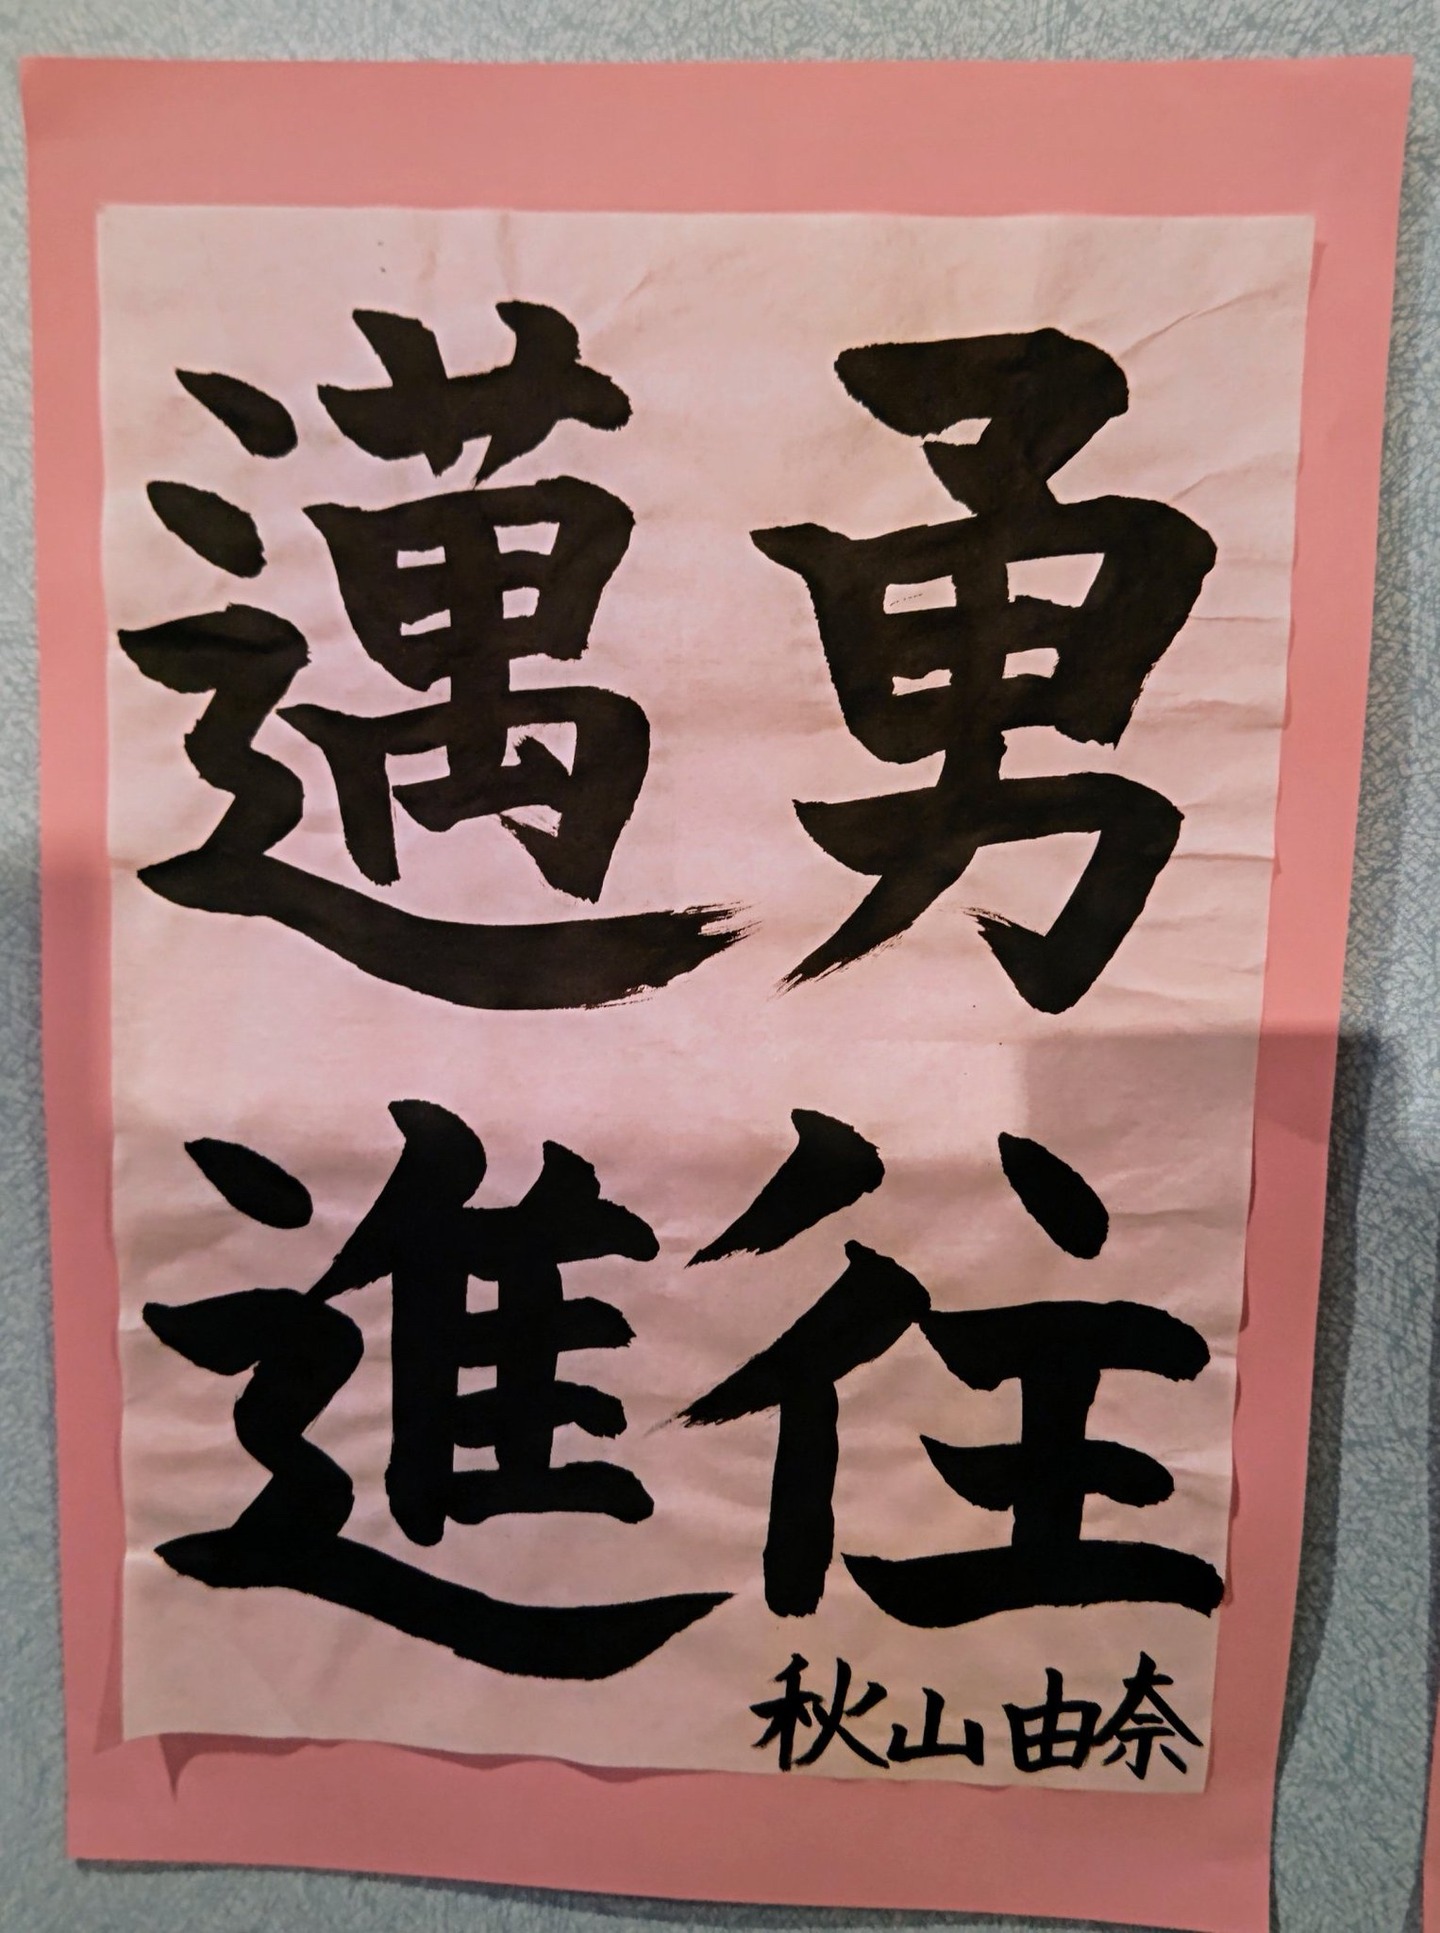 勇往
邁進
秋山由奈